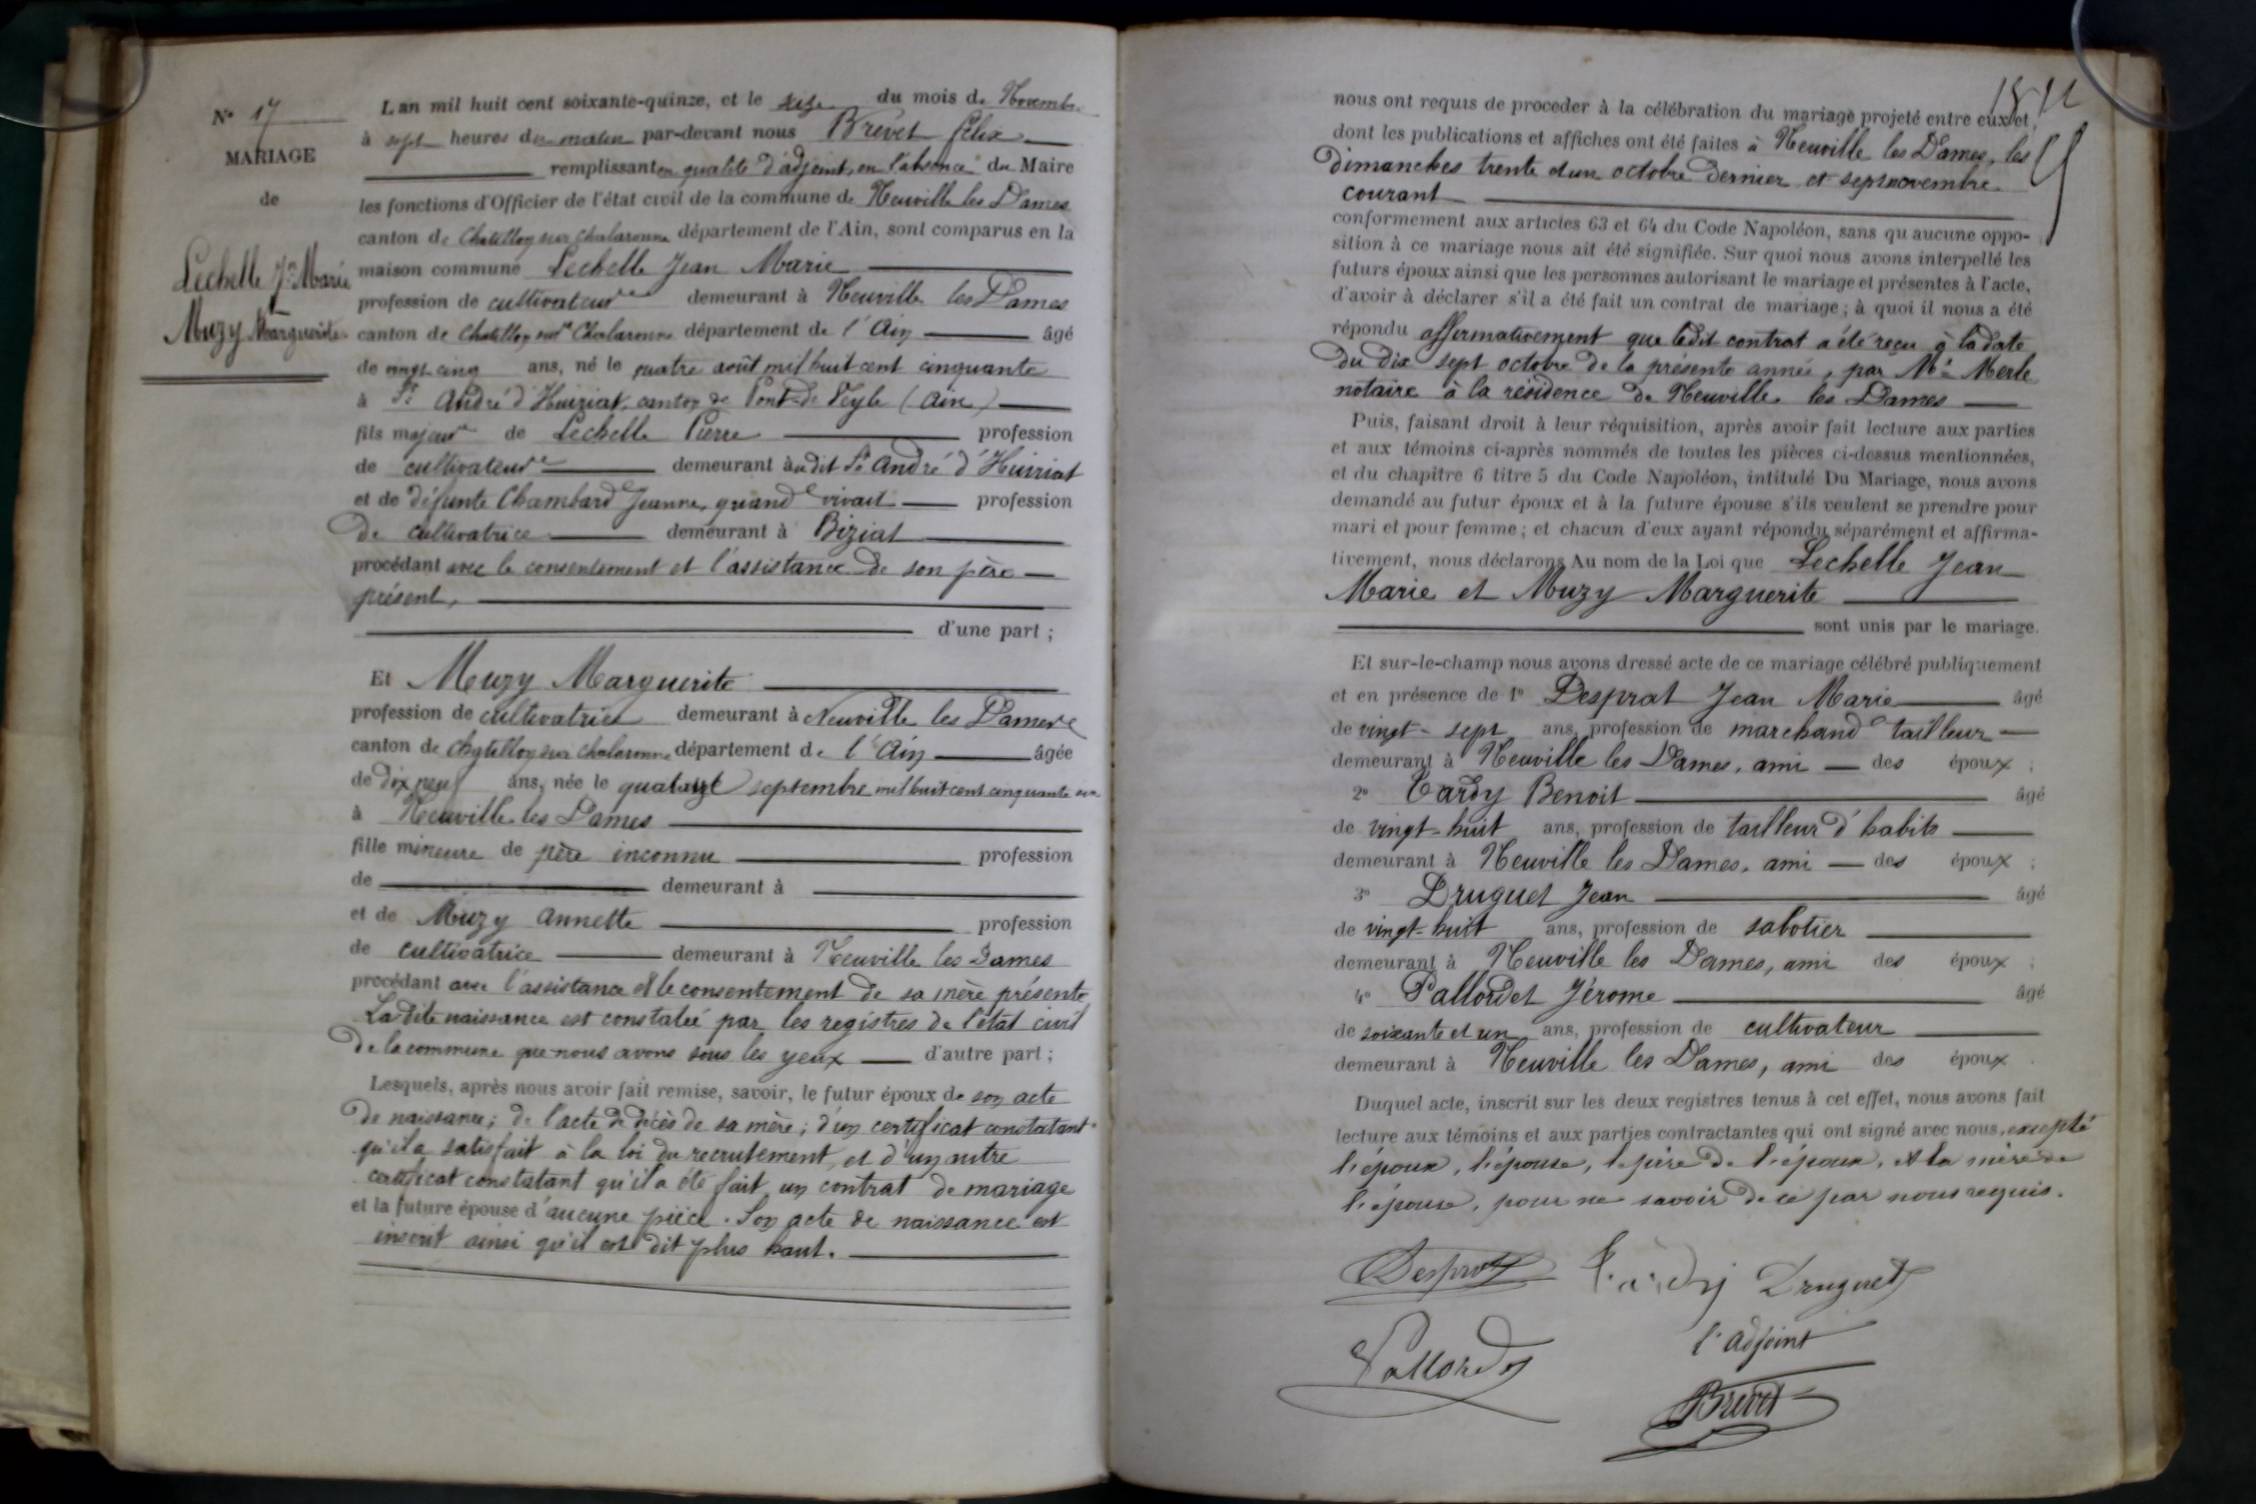 N° 17
MARIAGE
de
Lechelle Jn Marie
Muzy Marguerite
L'an mil huit cent soixante-quinze, et le seize du mois de Novembre
à sept heures du matin par-devant nous Brevet félix
remplissant en qualité d'adjoint, en l'absence du Maire
les fonctions d'Officier de l'état civil de la commune de Neuville les Dames
canton de Chatillon sur Chalaronne département de l'Ain, sont comparus en la
maison commune Lechelle Jean Marie
profession de cultivateur demeurant à Neuville les Dames
canton de Chatillon sur Chalaronne département de l'Ain âgé
de vingt cinq ans, né le quatre août mil huit cent cinquante
à St André d'Huiriat, canton de Pont-de Veyle (Ain)
fils majeur de Lechelle Pierre profession
de cultivateur demeurant à udit St André d'Huiriat
et de défunte Chambard Jeanne, quand vivait profession
de cultivatrice demeurant à Biziat
procédant avec le consentement et l'assistance de son père
présent,
d'une part ;
Et Muzy Marguerite
profession de cultivatrice demeurant à Neuville les Dames
canton de Chatillon sur Chalaronne département de l'Ain âgée
de dix neuf ans, née le quatorze septembre mil huit cent cinquante six
à Neuville les Dames
fille mineure de père inconnu profession
de demeurant à
et de Muzy Annette profession
de cultivatrice demeurant à Neuville les Dames
procédant avec l'assistance et le consentement de sa mère présente
La dite naissance est constatée par les registres de l'état civil
de la commune que nous avons sous les yeux d'autre part ;
Lesquels, après nous avoir fait remise, savoir, le futur époux de son acte
de naissance ; de l'acte de décès de sa mère ; d'un certificat constatant
qu'il a satisfait à la loi du recrutement, et d'un autre
certificat constatant qu'il a été fait un contrat de mariage
et la future épouse d'aucune pièce. Son acte de naissance est
inscrit ainsi qu'il est dit plus haut.
nous ont requis de procéder à la célébration du mariage projeté entre eux et
dont les publications et affiches ont été faites à Neuville les Dames, les
dimanches trente et un octobre dernier et sept novembre
courant
conformément aux articles 63 et 64 du Code Napoléon, sans qu'aucune oppo-
sition à ce mariage nous ait été signifiée. Sur quoi nous avons interpellé les
futurs époux ainsi que les personnes autorisant le mariage et présentes à l'acte,
d'avoir à déclarer s'il a été fait un contrat de mariage ; à quoi il nous a été
répondu affirmativement que ledit contrat a été reçu à la date
du dix sept octobre de la présente année, par Me Merle
notaire à la résidence de Neuville les Dames
Puis, faisant droit à leur réquisition, après avoir fait lecture aux parties
et aux témoins ci-après nommés de toutes les pièces ci-dessus mentionnées,
et du chapitre 6 titre 5 du Code Napoléon, intitulé Du Mariage, nous avons
demandé au futur époux et à la future épouse s'ils veulent se prendre pour
mari et pour femme ; et chacun d'eux ayant répondu séparément et affirma-
tivement, nous déclarons Au nom de la Loi que Lechelle Jean
Marie et Muzy Marguerite
sont unis par le mariage.
Et sur-le-champ nous avons dressé acte de ce mariage célébré publiquement
et en présence de 1° Desprat Jean Marie âgé
de vingt-sept ans, profession de marchand tailleur
demeurant à Neuville les Dames, ami des époux ;
2° Tardy Benoit âgé
de vingt-huit ans, profession de tailleur d'habits
demeurant à Neuville les Dames, ami des époux ;
3° Druguet Jean âgé
de vingt-huit ans, profession de sabotier
demeurant à Neuville les Dames, ami des époux ;
4° Pallordet Jérome âgé
de soixante et un ans, profession de cultivateur
demeurant à Neuville les Dames, ami des époux.
Duquel acte, inscrit sur les deux registres tenus à cet effet, nous avons fait
lecture aux témoins et aux parties contractantes qui ont signé avec nous, excepté
l'époux, l'épouse, le père de l'époux, et la mère de
l'épouse, pour ne savoir de ce par nous requis.
Desprat Tardy Druguet
Pallordet l'adjoint
Brevet